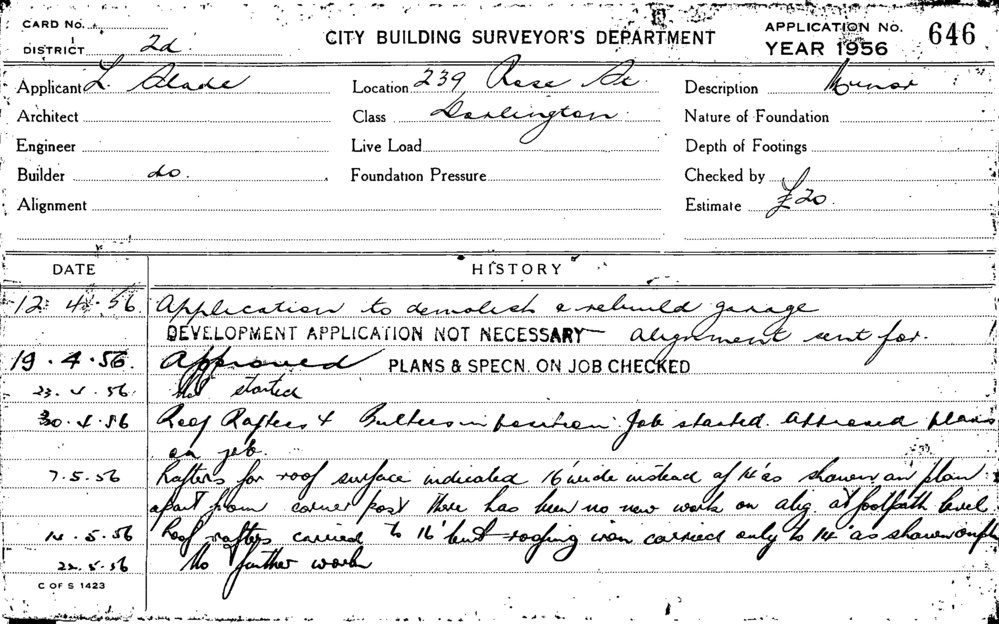 CARD No.
DISTRICT 2d.
CITY BUILDING SURVEYOR'S DEPARTMENT
APPLICATION No. 646
YEAR 1956
Applicant L. Slade
Location 239 Rose St.
Description Minor
Architect
Class Darlington
Nature of Foundation
Engineer
Live Load
Depth of Footings
Builder do.
Foundation Pressure
Checked by
Alignment
Estimate £20
DATE HISTORY
12 4 56. Application to demolish & rebuild garage
DEVELOPMENT APPLICATION NOT NECESSARY Alignment sent for.
19.4.56. Approved PLANS & SPECN. ON JOB CHECKED
23.4.56. Not started
30.4.56 Roof Rafters & in position. Job started. Approved plans
on job.
7.5.56 Rafters for roof surface indicated 16' wide instead of 14' as shown on plan
apart from corner post there has been no new work on alig. at footpath level.
14.5.56 Roof rafters carried to 16' but roofing iron carried only to 14' as shown on
22.5.56 No further work
C OF S 1423